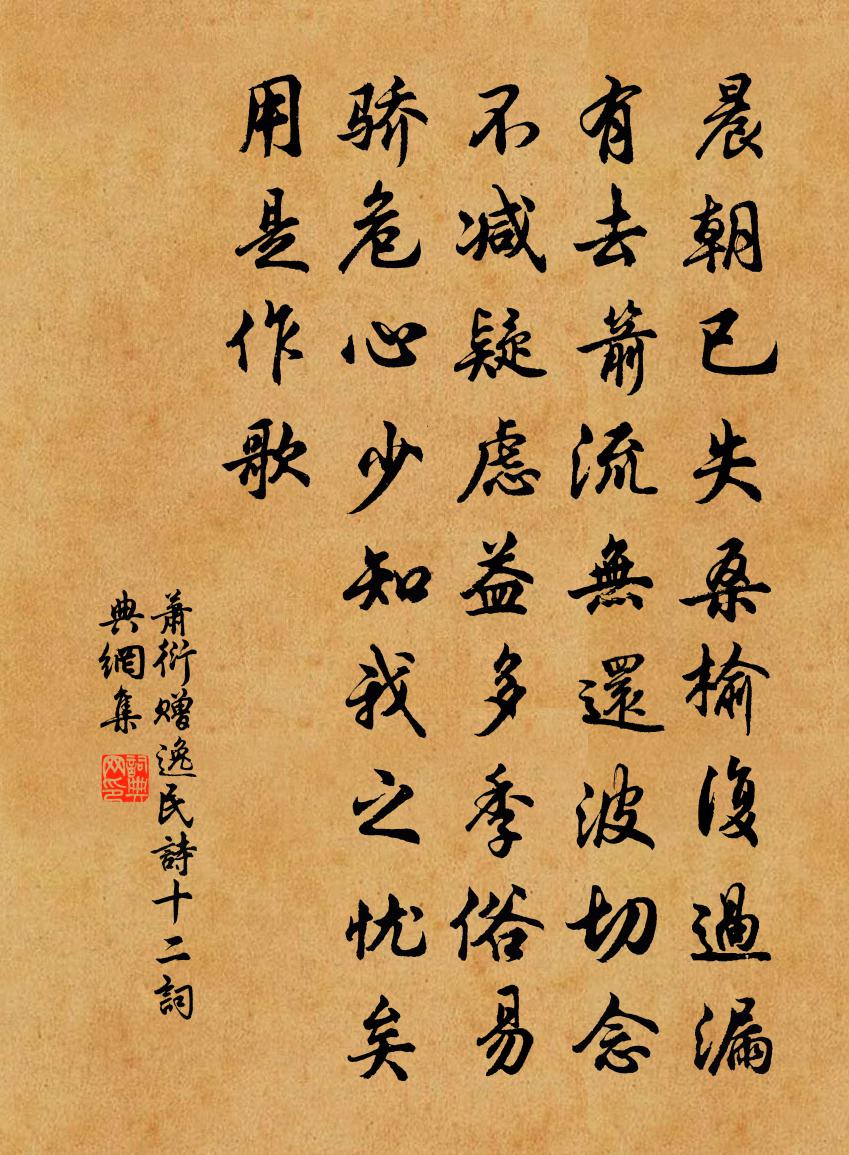 晨朝已失桑榆復過漏
有去箭流無還波切念
不减疑慮益多季俗易
骄危心少知我之忧矣
用是作歌
萧衍赠逸民詩十二詞
典網集
詞典网印